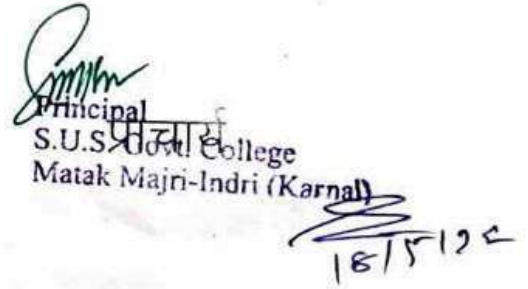 Principal
प्राचार्य
S.U.S. Govt. College
Matak Majri-Indri (Karnal)